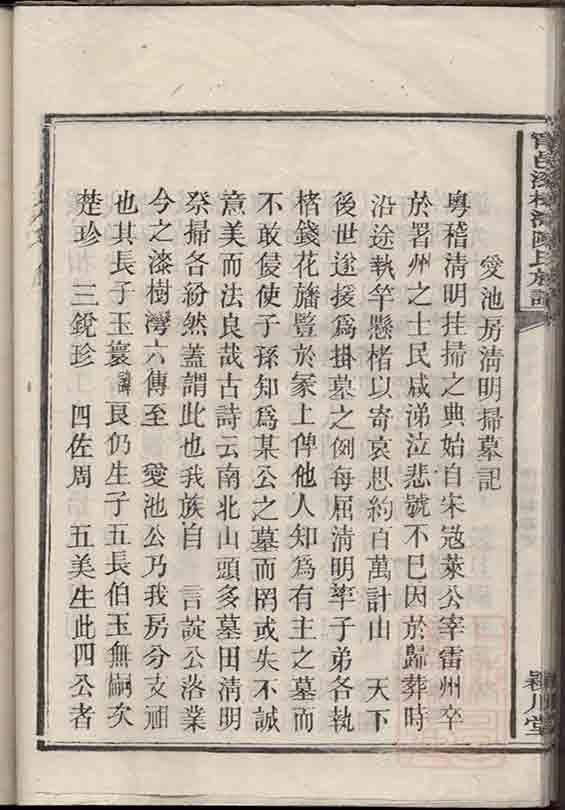 愛池房清明掃墓記
粵稽清明挂掃之典始自宋寇萊公宰雷州卒
於署州之士民咸涕泣悲號不已因於歸葬時
沿途執竿懸楮以寄哀思約百萬計山 天下
後世遂援爲掛墓之例每屆清明率子弟各執
楮錢花旛豎於冢上俾他人知爲有主之墓而
不敢侵使子孫知爲某公之墓而罔或失不誠
意美而法良哉古詩云南北山頭多墓田清明
祭掃各紛然蓋謂此也我族自 言諚公落業
今之漆樹灣六傳至 愛池公乃我房分支祖
也其長子玉寰諱艮仍生子五長伯玉無嗣次
楚珍 三銳珍 四佐周 五美生此四公者
漆樹灣陳氏族譜
潁川堂